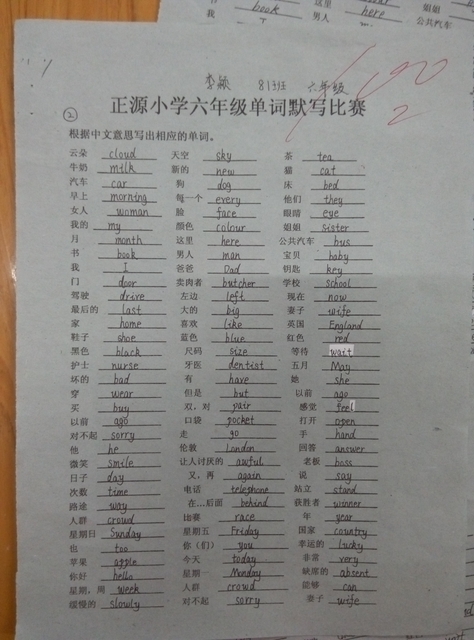 book 这里 姐姐
我 I 男人 here 公共汽车
李颖 813班 六年级
100
2
② 正源小学六年级单词默写比赛
根据中文意思写出相应的单词。
云朵 cloud 天空 sky 茶 tea
牛奶 milk 新的 new 猫 cat
汽车 car 狗 dog 床 bed
早上 morning 每一个 every 他们 they
女人 woman 脸 face 眼睛 eye
我的 my 颜色 colour 姐姐 sister
月 month 这里 here 公共汽车 bus
书 book 男人 man 宝贝 baby
我 I 爸爸 Dad 钥匙 key
门 door 卖肉者 butcher 学校 school
驾驶 drive 左边 left 现在 now
最后的 last 大的 big 妻子 wife
家 home 喜欢 like 英国 England
鞋子 shoe 蓝色 blue 红色 red
黑色 black 尺码 size 等待 wait
护士 nurse 牙医 dentist 五月 May
坏的 bad 有 have 她 she
穿 wear 但是 but 以前 ago
买 buy 双，对 pair 感觉 feel
以前 ago 口袋 pocket 打开 open
对不起 sorry 走 go 手 hand
他 he 伦敦 London 回答 answer
微笑 smile 让人讨厌的 awful 老板 boss
日子 day 又，再 again 说 say
次数 time 电话 telephone 站立 stand
路途 way 在…后面 behind 获胜者 winner
人群 crowd 比赛 race 年 year
星期日 Sunday 星期五 Friday 国家 country
也 too 你（们） you 幸运的 lucky
苹果 apple 今天 today 非常 very
你好 hello 星期一 Monday 缺席的 absent
星期，周 week 人群 crowd 能够 can
缓慢的 slowly 对不起 sorry 妻子 wife